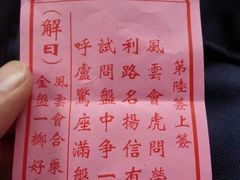 第陸簽上簽
風雲會虎問榮
利路名揚信有
試問盤中爭一
呼盧驚座滿盤
(解曰)
風雲會合乘
金盤一擲好